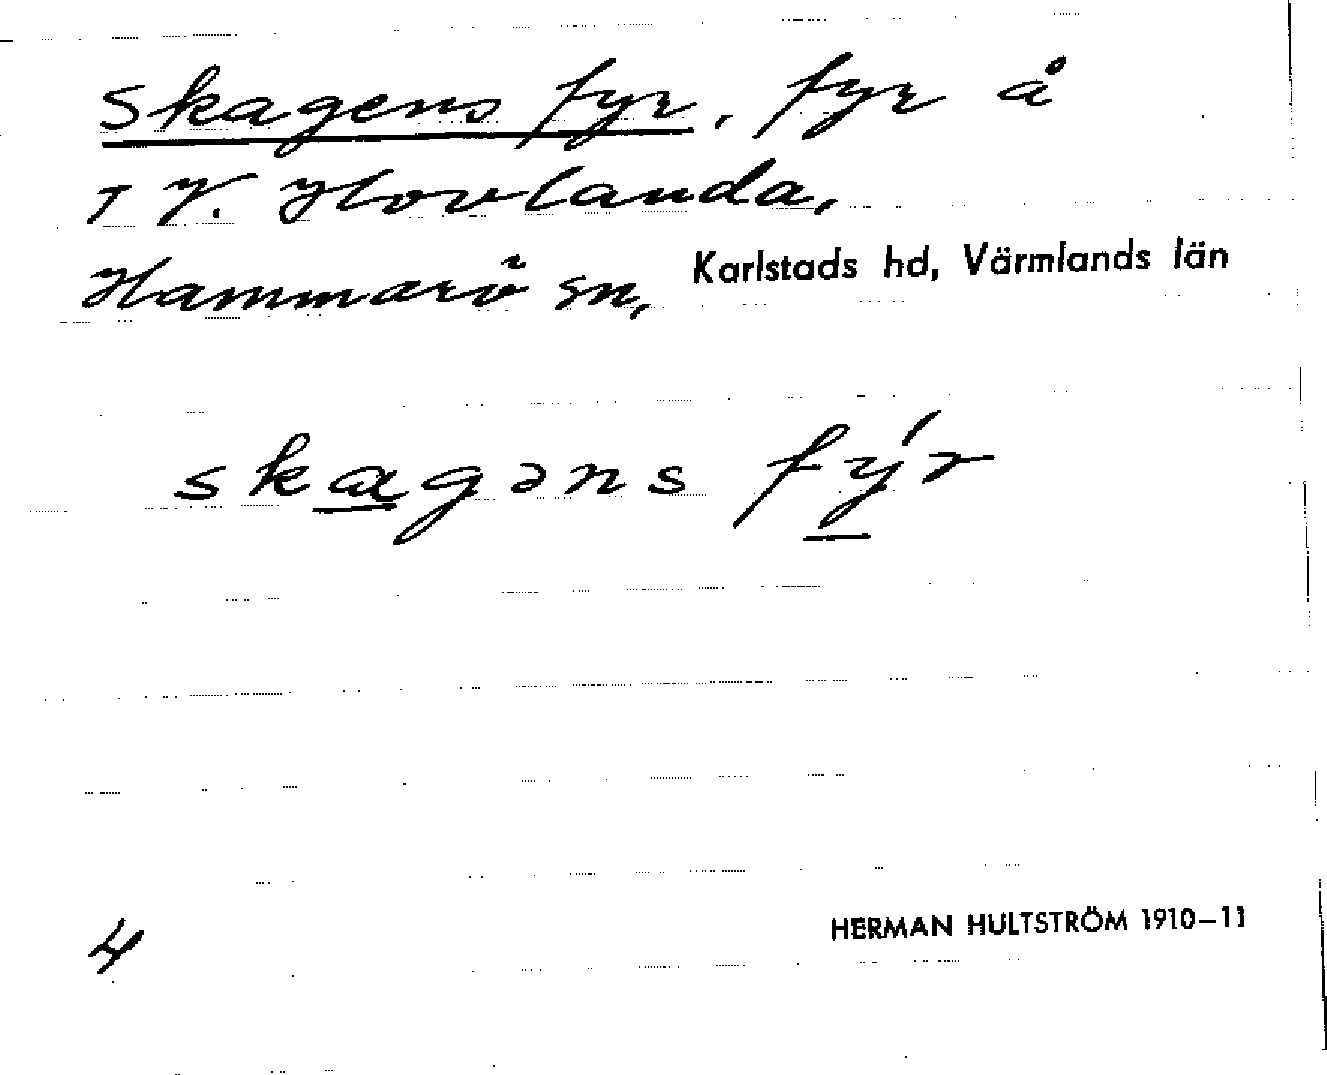 Skagens fyr, fyr å
T V. Hovlanda,
Hammarö sn, Karlstads hd, Värmlands län
skagəns fýr
4
HERMAN HULTSTRÖM 1910–11